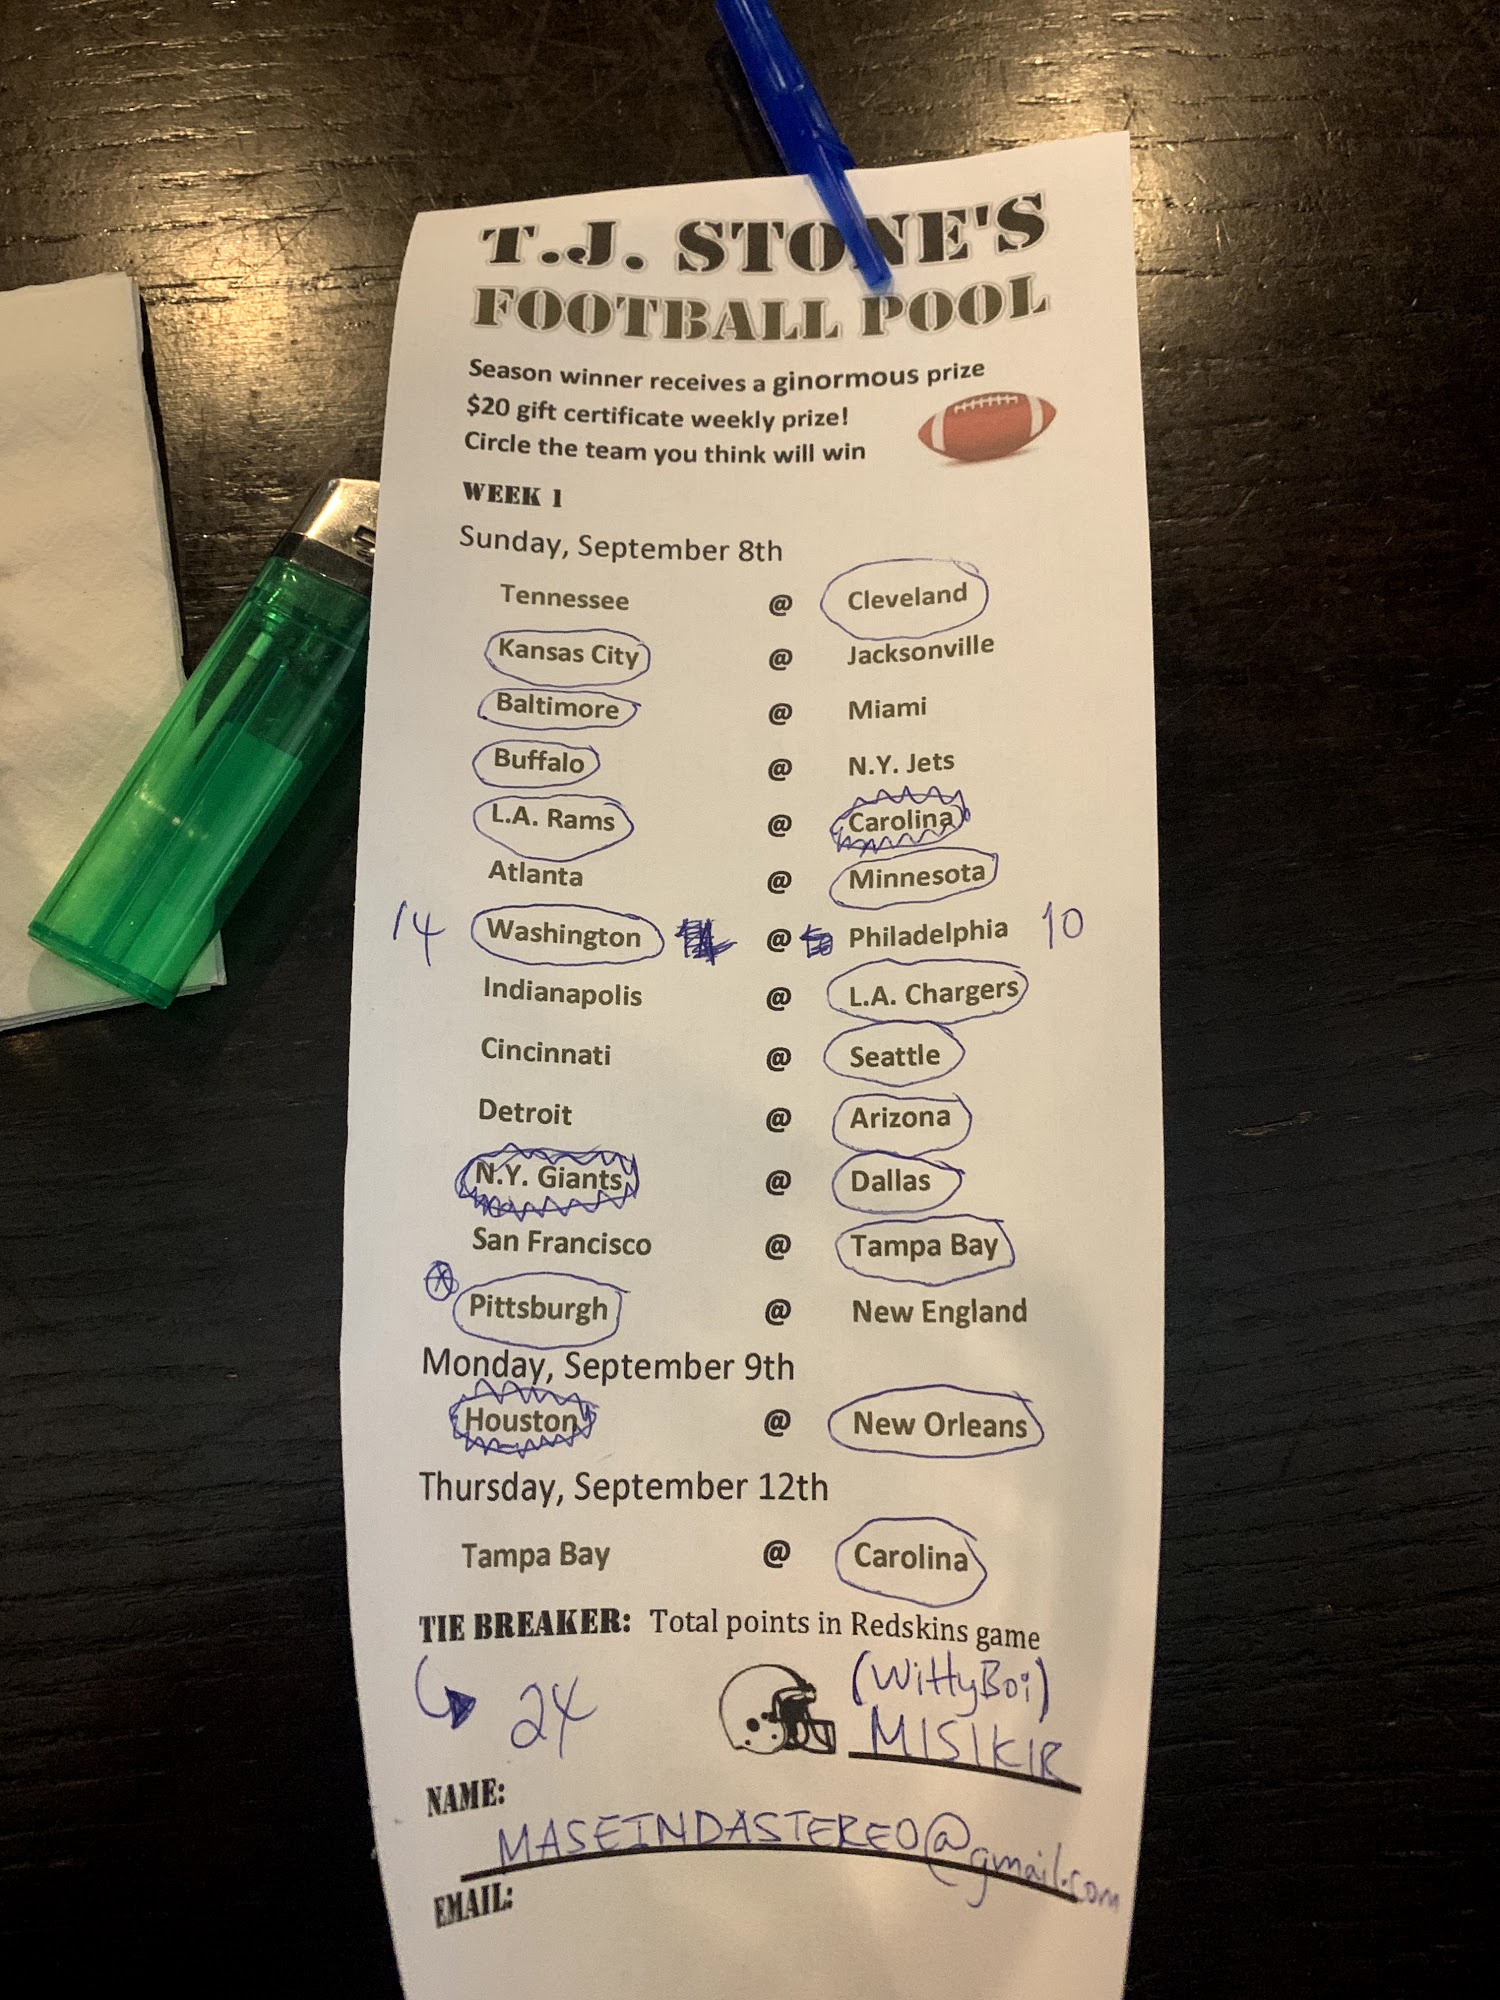 T.J. STONE'S
FOOTBALL POOL
Season winner receives a ginormous prize
$20 gift certificate weekly prize!
Circle the team you think will win
WEEK 1
Sunday, September 8th
Tennessee @ Cleveland
Kansas City @ Jacksonville
Baltimore @ Miami
Buffalo @ N.Y. Jets
L.A. Rams @ Carolina
Atlanta @ Minnesota
14 Washington @ Philadelphia 10
Indianapolis @ L.A. Chargers
Cincinnati @ Seattle
Detroit @ Arizona
N.Y. Giants @ Dallas
San Francisco @ Tampa Bay
Pittsburgh @ New England
Monday, September 9th
Houston @ New Orleans
Thursday, September 12th
Tampa Bay @ Carolina
TIE BREAKER: Total points in Redskins game
24 (WittyBoi)
MISIKIR
NAME:
MASEINDASTEREO@gmail.com
EMAIL: